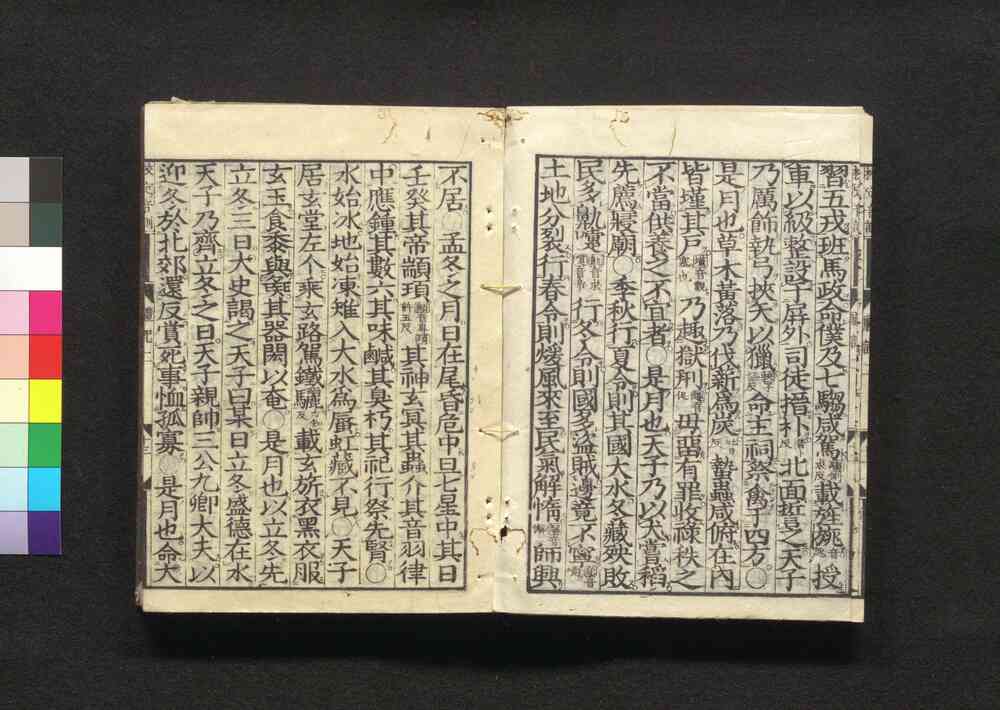 習五戎班馬政命僕及七騶咸駕載旌旐授
車以級整設于屏外司徒搢朴北面誓之天子
乃厲飾執弓挾矢以獵命主祠祭禽于四方○
是月也草木黃落乃伐薪為炭蟄蟲咸俯在內
皆墐其戶乃趣獄刑毋留有罪收祿秩之
不當供養之不宜者○是月也天子乃以犬嘗稻
先薦寢廟○季秋行夏令則其國大水冬藏殃敗
民多鼽嚏行冬令則國多盜賊邊竟不寧
土地分裂行春令則煖風來至民氣解惰師興
不居○孟冬之月日在尾昏危中旦七星中其日
壬癸其帝顓頊其神玄冥其蟲介其音羽律
中應鍾其數六其味鹹其臭朽其祀行祭先腎○
水始冰地始凍雉入大水為蜃虹藏不見○天子
居玄堂左个乘玄路駕鐵驪載玄旂衣黑衣服
玄玉食黍與彘其器閎以奄○是月也以立冬先
立冬三日大史謁之天子曰某日立冬盛德在水
天子乃齊立冬之日天子親帥三公九卿大夫以
迎冬於北郊還反賞死事恤孤寡○是月也命大